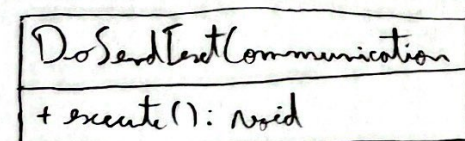 DoSendTextCommunication
+ execute(): void